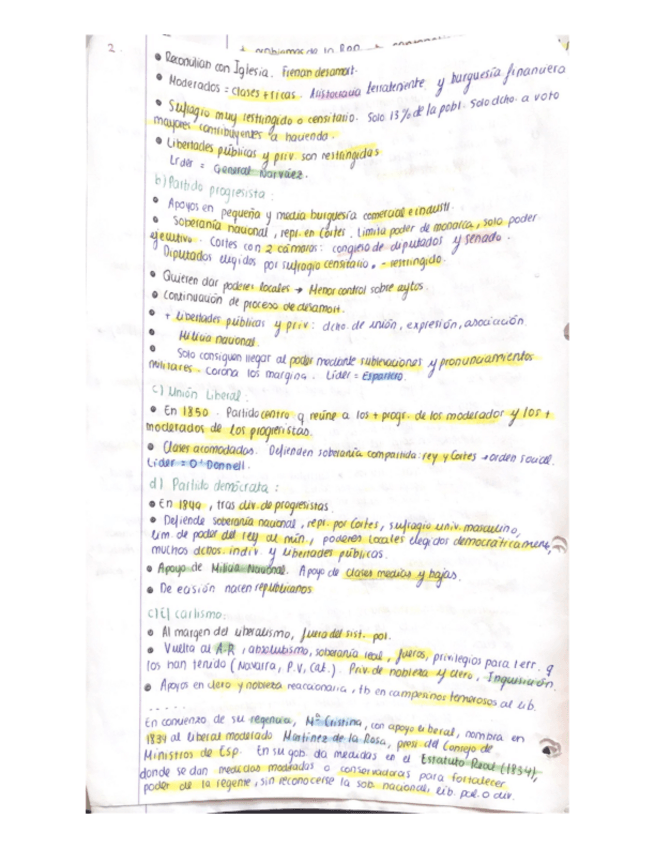 2.
problemas de la
• Reconcilian con Iglesia. Frenan desamort.
• Moderados = clases + ricas. Aristocracia terrateniente y burguesía financiera
• Sufragio muy restringido o censitario. Solo 13% de la pobl. Solo dcho. a voto
mayores contribuyentes a hacienda.
• Libertades públicas y priv. son restringidas
Líder = General Narváez.
b) Partido progresista:
• Apoyos en pequeña y media burguesía comercial e industi.
• Soberanía nacional, repr. en Cortes. Limita poder de monarca, solo poder
ejecutivo. Cortes con 2 cámaras: congreso de diputados y senado.
Diputados elegidos por sufragio censitario, - restringido.
• Quieren dar poderes locales → Menor control sobre aytos.
• Continuación de proceso de desamort.
• + libertades públicas y priv: dcho. de unión, expresión, asociación
• Milicia nacional.
• Solo consiguen llegar al poder mediante sublevaciones y pronunciamientos
militares. Corona los margina. Líder = Espartero.
c) Unión Liberal:
• En 1850. Partido centro q reúne a los + progr. de los moderador y los +
moderados de los progresistas.
• Clases acomodadas. Defienden soberanía compartida: rey y Cortes → orden social.
Líder = O'Donnell.
d) Partido demócrata:
• En 1849, tras div. de progresistas.
• Defiende soberanía nacional, repr. por Cortes, sufragio univ. masculino,
lim. de poder del rey al mín, poderes locales elegidos democráticament,
muchos dchos. indiv. y libertades públicas.
• Apoyo de Milicia Nacional. Apoyo de clases medias y bajas.
• De escisión nacen republicanos
c) El carlismo:
• Al margen del liberalismo, fuera del sist. pol.
• Vuelta al A.R, absolutismo, soberanía real, fueros, privilegios para terr. q
los han tenido (Navarra, P.V, Cat.). Priv. de nobleza y clero, Inquisición.
• Apoyos en clero y nobleza reaccionaria, tb en campesinos temerosos al lib.
.....
En comienzo de su regencia, Mª Cristina, con apoyo liberal, nombra en
1834 al liberal moderado Martínez de la Rosa, pres. del Consejo de
Ministros de Esp. En su gob. da medidas en el Estatuto Real (1834),
donde se dan medidas moderadas o conservadoras para fortalecer
poder de la regente, sin reconocerse la sob. nacional, lib. pol. o div.